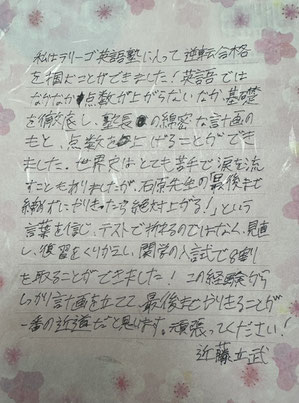 私はラリーゴ英語塾に入って逆転合格
を掴むことができました！英語では
なかなか点数が上がらないなか、基礎
を徹底し、塾長の綿密な計画の
もと、点数を上げることができ
ました。世界史はとても苦手で涙を流
すこともありましたが、石原先生の「最後まで
諦めずにやりきったら絶対上がる！」という
言葉を信じ、テストで折れるのではなく、見直
し、復習をくりかえし、関学の入試で8割
を取ることができました！この経験から
しっかり計画を立てて、最後までやりきることが
一番の近道だと思います。頑張ってください！
近藤 武